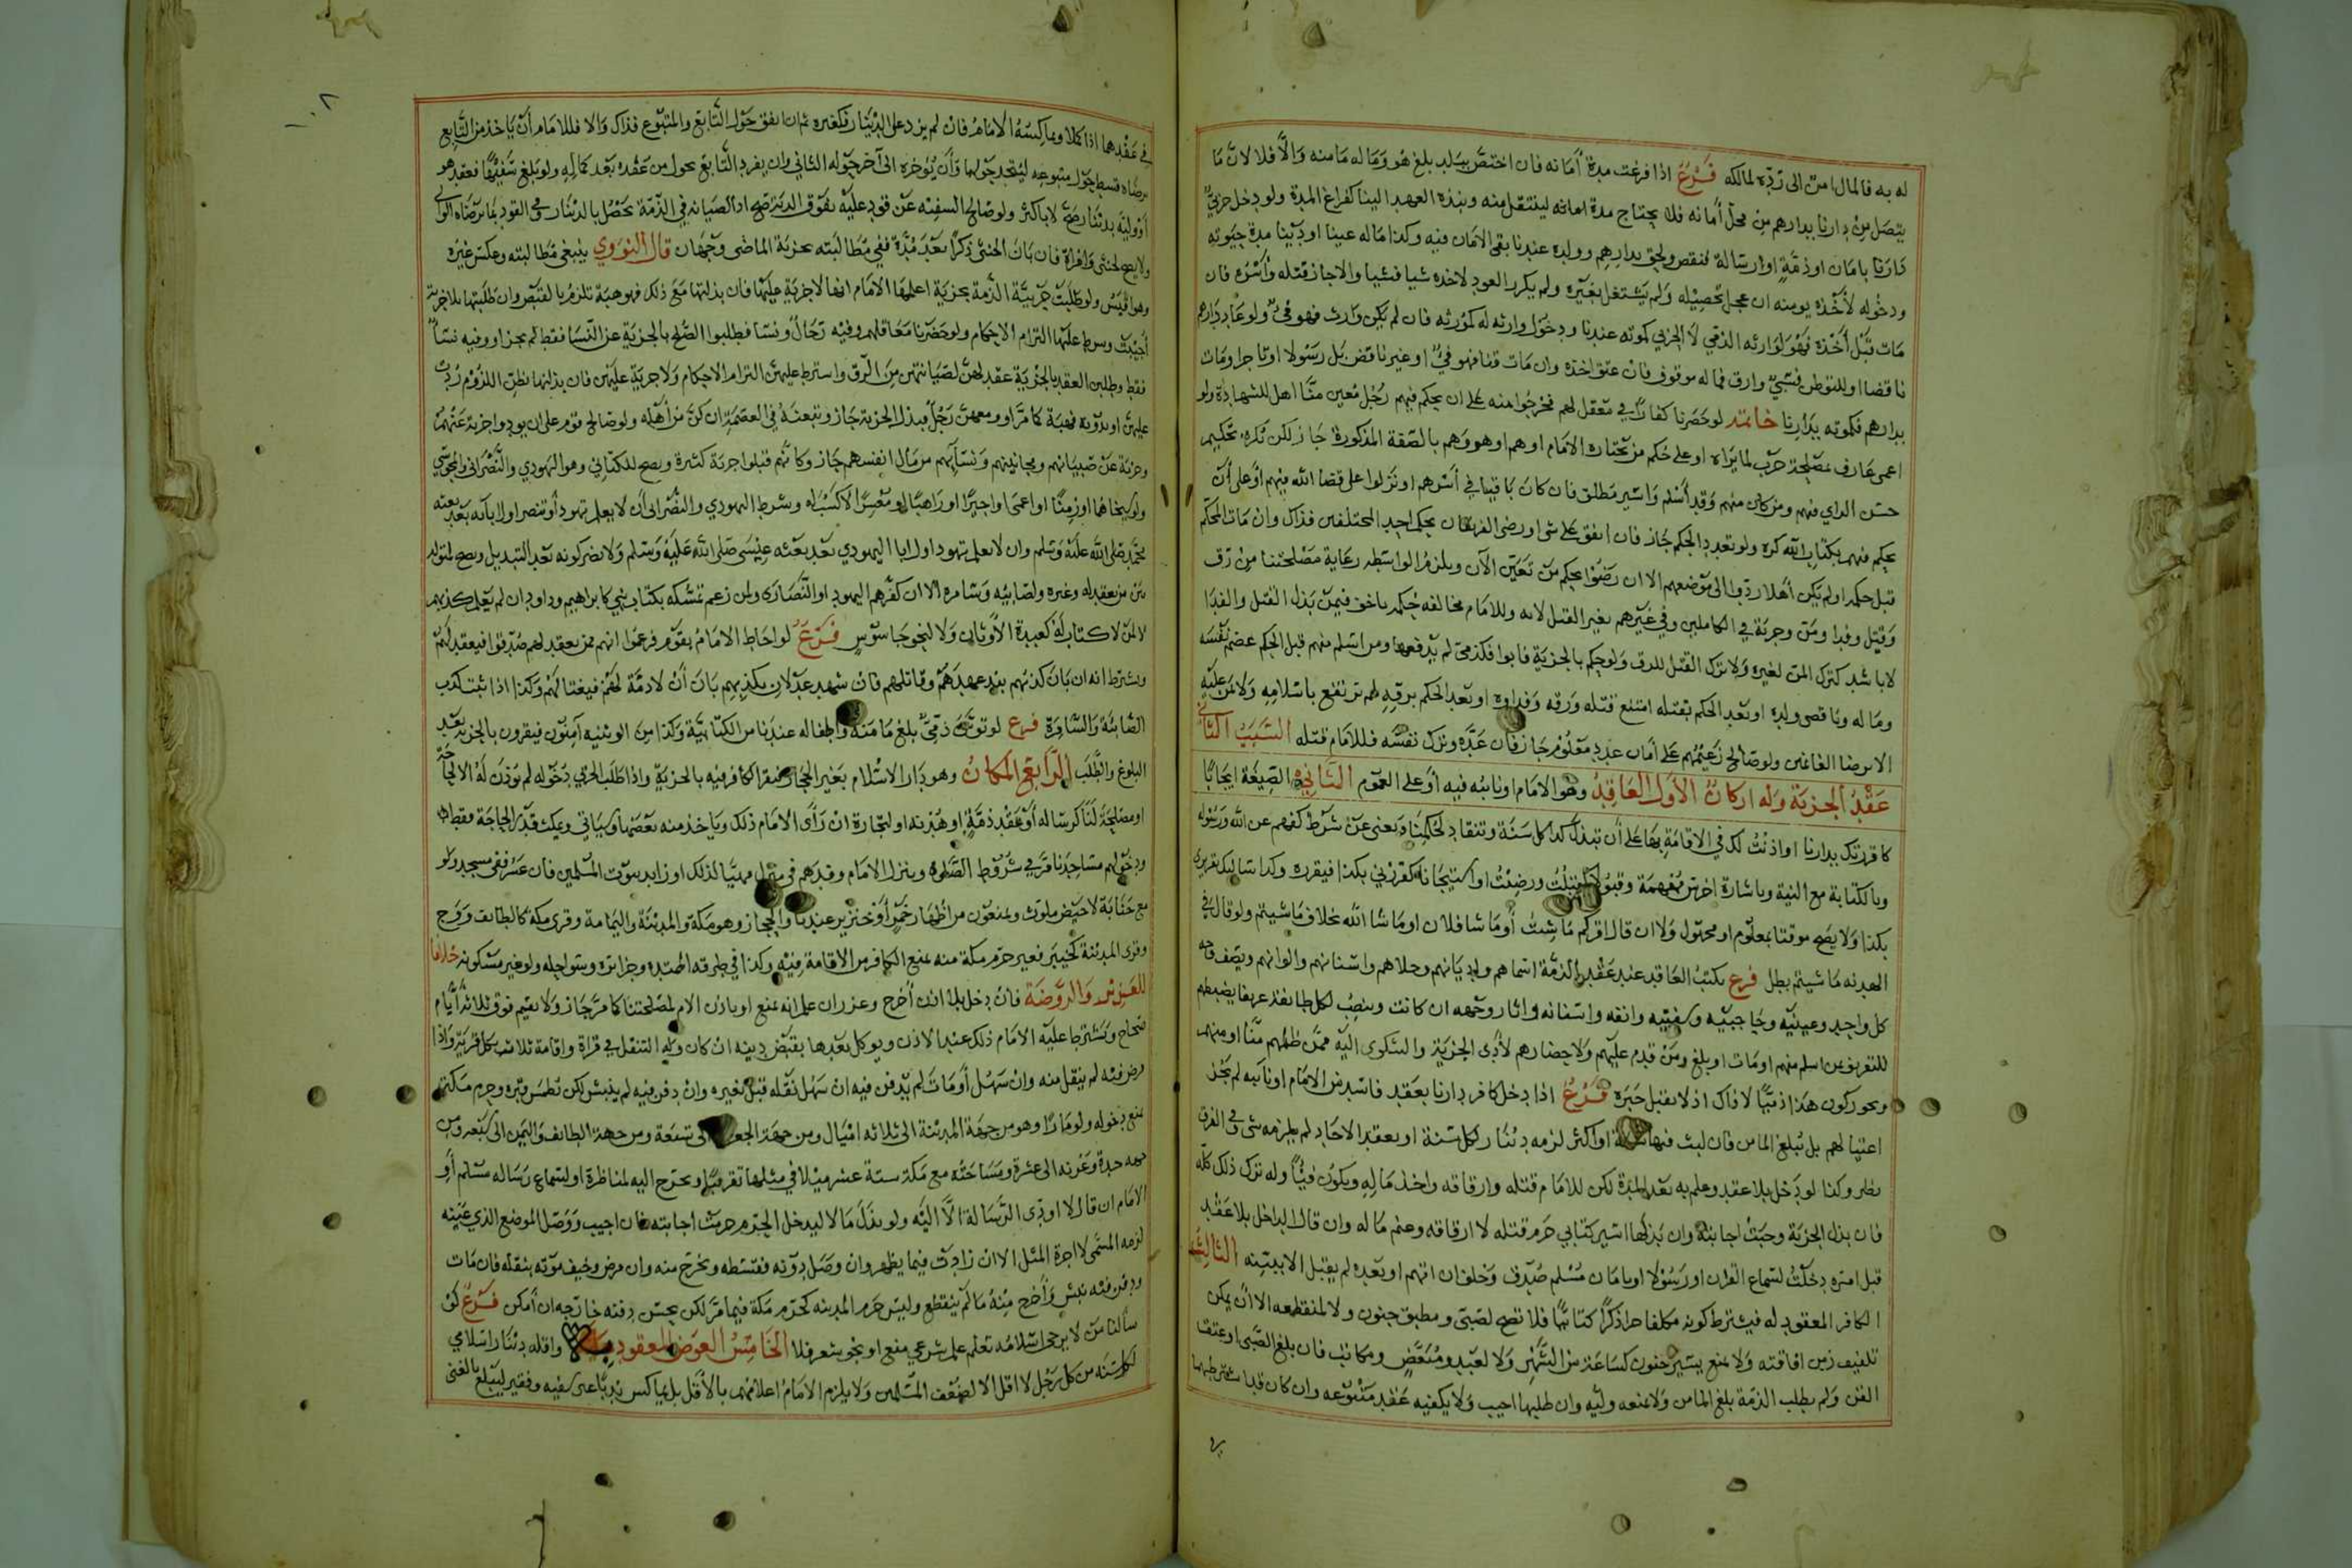 له به فالمال امن الى رده لمالكه فرع اذا فرغت مدة أمانه فان اختص ببلد بلغ هو وماله مامنه والا فلا لان ما
يتصل من دارنا بدارهم من محل أمانه فلا يحتاج مدة امانه لينتقل منه ونبذه العهد الينا كفراغ المدة ولو دخل حربي
دارنا بامان او ذمة او رسالة فنقض ولحق بدارهم وولده عندنا بقي الامان فيه وكذا ماله عينا او دينا مدة حيوته
ودخوله لأخذه يومنه ان عجل تحصيله ولم يشتغل بغيره ولم يكرر العود لاخذه شيا فشيا والا جاز قتله وأسره فان
مات قبل أخذه فهو لوارثه الذمي لا الحربي كموته عندنا ودخول وارثه له كمورثه فان لم يكن وارث فهو فيٌ ولو عاد دارهم
ناقضا او للتوطن فسبي وارق فماله موقوف فان عتق اخذه وان مات قنا فهو فيٌ او غير ناقض بل رسولا او تاجرا ومات
بدارهم فكموته بدارنا خاتمة لو حصرنا كفارا في معقل لهم فخرجوا منه على ان يحكم فيهم رجل معين منا اهل للشهادة ولو
اعمى عارف بمصلحة حرب لما يراه او على حكم من يختاره الامام او هم او هو وهم بالصفة المذكورة جاز لكن نكره تحكيم
حسن الراي فيهم ومن كان منهم وقد أسلم واسير مطلق فان كان باقيا في أسرهم او نزلوا على قضا الله فيهم او على أن
يحكم فيهم بكتاب الله كره ولو تعدد الحكم جاز فان اتفق على شي او رضي الفريقان بحكم احد المختلفين فذاك وان مات المحكم
قبل حكمه او لم يكن أهلا ردوا الى موضعهم الا ان رضوا بحكم من تعين الآن ويلزم الواسطه رعاية مصلحتنا من رق
وقتل وفدا ومن وجزية في الكاملين وفي غيرهم بغير القتل لانه وللامام مخالفه حكمه باخف فيمن بذل القتل والفدا
لا باشد كترك المن لغيره ولا بترك القتل للرق ولو حكم بالجزية فابوا فكذمي لم يدفعها ومن اسلم منهم قبل الحكم عصم نفسه
وماله وناقص ولده او بعد الحكم بقتله امتنع قتله ورقه وفداوه او بعد الحكم برقه لم ترتفع باسلامه ولا يمن عليه
الا برضا الغانمين ولو صالح زعيمهم على أمان عدد معلوم جاز فان عده وترك نفسه فللامام قتله السبب الثا
عقد الجزية وله اركان الأول العاقد وهو الامام او نائبه فيه او على العموم الثاني الصيغة ايجابا
كاقررتك بدارنا او اذنت لك في الاقامة بها على أن تبذل كذا كل سنة وتنقاد لحكمنا ويغني عن شرط كفهم عن الله ورسوله
وبالكتابة مع النية وباشارة اخرس مفهمة وقبولا كقبلت ورضيت او استيجابا كقررني بكذا فيقرره وكذا اسالك تقريري
بكذا ولا يصح موقتا بمعلوم او مجهول ولا ان قال اقركم ما شئت أو ما شا فلان او ما شا الله بخلاف ما شيتم ولو قال في
الهدنه ما شيتم بطل فرع يكتب العاقد عند عقد الذمة اسماهم واديانهم وحلاهم واسنانهم والوانهم ويصف وجه
كل واحد وعينيه وحاجبيه وشفتيه وانفه واسنانه واثار وجهه ان كانت وينصب لكل طائفة عريفا يضبطهم
للتعريف بمن اسلم منهم او مات او بلغ ومن قدم عليهم ولاحضارهم لأدى الجزية والشكوى اليه ممن ظلمهم منا او منهم
ويجوز كون هذا ذميا لا ذاك اذ لا يقبل خبره فرع اذا دخل كافر دارنا بعقد فاسد من الامام او نائبه لم يجز
اغتيالهم بل يبلغ المامن فان لبث فيها سنة او اكثر لزمه دينار لكل سنة او بعقد الاحاد لم يلزمه شي وفي الفرق
نظر وكذا لو دخل بلا عقد وعلم به بعد المدة لكن للامام قتله وارقاقه واخذ ماله ويكون فيئا وله ترك ذلك كله
فان بذل الجزية وجبت اجابته وان بذلها اسير كتابي حرم قتله لا ارقاقه وغنم ماله وان قال الداخل بلا عقد
قبل اسره دخلت لسماع القران او رسولا او بامان مسلم صدق وحلف ان اتهم او بعده لم يقبل الا ببينه الثالث
الكافر المعقود له فيشترط كونه مكلفا حرا ذكرا كتابيا فلا تصح لصبي ومطبق جنون ولا لمنقطعه الا أن يمكن
تلفيق زمن افاقته ولا يمنع يسير جنون كساعة من الشهر ولا لعبد ومبعض ومكاتب فان بلغ الصبي او عتق
القن ولم يطلب الذمة بلغ المامن ولا يمنعه وليه وان طلبها اجيب ولا يكفيه عقد متبوعه وان كان قد اشترطها
في عقدهما اذا كملا وماكسه الامام فان لم يزد على الدينار فكغيره ثم ان اتفق حول التابع والمتبوع فذاك والا فللامام أن ياخذ من التابع
برضاه قسط حول متبوعه ليتحد حولهما وأن يؤخره الى آخر حوله الثاني وان يفرد التابع بحول من عقده بعد كماله ولو بلغ سفيها فعقد هو
أو وليه بدينار صح لا باكثر ولو صالح السفيه عن قود عليه بفوق الدية صح اذ الصيانه في الذمة تحصل بالدينار وفي القود بما يرضاه الولي
ولا يصح لخنثى وامراة فان بان الخنثى ذكرا بعد مدة ففي مطالبته بجزية الماضي وجهان قال النووي ينبغي مطالبته وعكس غيره
وهو اقيس ولو طلبت حربية الذمة بجزية اعلمها الامام انها لا جزية عليها فان بذلتها مع ذلك فهو هبة تلزم بالقبض وان طلبتها بلا جزية
أجيبت وشرط عليها التزام الاحكام ولو حصرنا معاقلهم وفيه رجال ونسا فطلبوا الصلح بالجزية عن النسا فقط لم يجز او وفيه نسا
فقط وطلبن العقد بالجزية عقد لهن لصيانتهن من الرق واشترط عليهن التزام الاحكام ولا جزية عليهن فان بذلنها بظن اللزوم ردت
عليهن او بدونه فهبة كما مر او ومعهن رجل فبذل الجزية جاز وتبعنه في العصمة ان كن من أهله ولو صالح قوم على ان يودوا جزية عنهم
وجزية عن صبيانهم ومجانينهم ونسائهم من مال انفسهم جاز وكانهم قبلوا جزية كثيرة ويصح للكتابي وهو اليهودي والنصراني والمجوسي
ولو شيخا هما او زمنا او اعمى او اجيرا او راهبا او معسرا لا كسب له وشرط اليهودي والنصراني أن لا يعلم تهود أو تنصر اول ابائه بعد بعثه
محمد صلى الله عليه وسلم وان لا يعلم تهود اول ابا اليهودي بعد بعثه عيسى صلى الله عليه وسلم ولا يضر كونه بعد التبديل ويصح لمتولد
بين من يعقد له وغيره ولصابئه وسامره الا ان كفرهم اليهود او النصارى ولمن زعم تمسكه بكتاب نبي كابراهيم وداود ان لم يعلم كذبهم
لا لمن لا كتاب له كعبدة الأوثان ولا لنحو جاسوس فرع لو احاط الامام بقوم فزعموا انهم ممن يعقد لهم صدقوا فيعقد لهم
ويشترط انه ان بان كذبهم نبذ عهدهم وقاتلهم فان شهد عدلان بكذبهم بان أن لا ذمة لهم فيغتالهم وكذا اذا ثبت كذب
الصابئة والسامرة فرع لو توثن ذمي بلغ مامنه واطفاله عندنا من الكتابية وكذا من الوثنيه آمنون فيقرون بالجزية بعد
البلوغ والطلب الرابع المكان وهو دار الاسلام بغير الحجاز فيقر الكافر فيه بالجزية واذا طلب الحربي دخوله لم يوذن له الا لحاجة
او مصلحة لنا كرساله أو عقد ذمة او هدنه او لتجارة ان راى الامام ذلك وياخذ منه بعضها وسياتي ويمكث قدر الحاجة فقط
ودخولهم مساجدنا مر في شروط الصلوة وينزل الامام وفدهم في منزل مهيا لذلك او زايد بيوت المسلمين فان عسر ففي مسجد ولو
مع جنابة لا حيض ملوث ويمنعون من اظهار خمر أو خنزير عندنا والحجاز وهو مكة والمدينة واليمامة وقرى مكة كالطايف ووج
وقرى المدينة كخيبر فغير حرم مكة منه يمنع الكافر من الاقامة فيه وكذا في طرقه الممتده وجزائره وسواحله ولو غير مسكونة خلافا
للعزيز والروضة فان دخل بلا اذن أخرج وعزر ان علم انه يمنع او باذن الام لمصلحتنا كما مر جاز ولا يقيم فوق ثلاثة أيام
صحاح ويشترط عليه الامام ذلك عند الاذن ويوكل بعدها بقبض دينه ان كان وله التنقل في قراه واقامة ثلاث بكل قرية واذا
مرض فيه لم ينقل منه وان سهل أو مات لم يدفن فيه ان سهل نقله قبل تغيره وان دفن فيه لم ينبش لكن تطمس قبره وحرم مكة
يمنع دخوله ولو مارا وهو من جهة المدينة الى ثلاثه اميال ومن جهة الجعرانه الى تسعة ومن جهة الطائف واليمن الى سبعه ومن
جهه جدة وعرنه الى عشرة ومساحته مع مكة ستة عشر ميلا في مثلها تقريبا ويخرج اليه لمناظرة او لسماع رسالة مسلم أو
الامام ان قال لا اودى الرسالة الا اليه ولو بذل مالا ليدخل الحرم حرمت اجابته فان اجيب ووصل الموضع الذي عينه
لزمه المسمى لا اجرة المثل الا ان زادت فيما يظهر وان وصل دونه فقسطه ويخرج منه وان مرض وخيف موته بنقله فان مات
ودفن فيه نبش وأخرج منه ما لم يتقطع وليس حرم المدينه كحرم مكة فيما مر لكن يحسن دفنه خارجه ان أمكن فرع لو
سألنا من لا يرجى اسلامه تعلم علم شرعي منع او نحو شعر فلا الخامس العوض المعقود عليه واقله دينار اسلامي
لكل سنه من كل رجل لا اقل الا لضعف المسلمين ولا يلزم الامام اعلامهم بالأقل بل يماكس ندبا غير سفيه وفقير ليبلغ بالغني